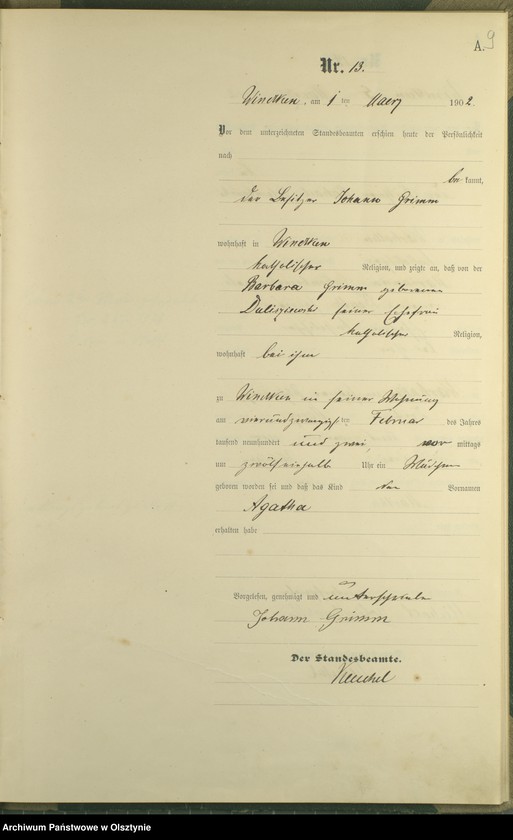 A. 9
Nr. 13.
am 1 ten Maerz 1902.
Vor dem unterzeichneten Standesbeamten erschien heute, der Persönlichkeit
nach
be kannt,
der Besitzer Johann Grimm
wohnhaft in
katholischer Religion, und zeigte an, daß von der
Barbara Grimm geborenen
seiner Ehefrau
katholischer Religion,
wohnhaft bei ihm
zu in seiner Wohnung
am vierundzwanzigsten Februar des Jahres
tausend neunhundert und zwei, vor mittags
um Uhr ein Mädchen
geboren worden sei und daß das Kind den Vornamen
Agatha
erhalten habe
Vorgelesen, genehmigt und unterschrieben
Johann Grimm
Der Standesbeamte.
Archiwum Państwowe w Olsztynie